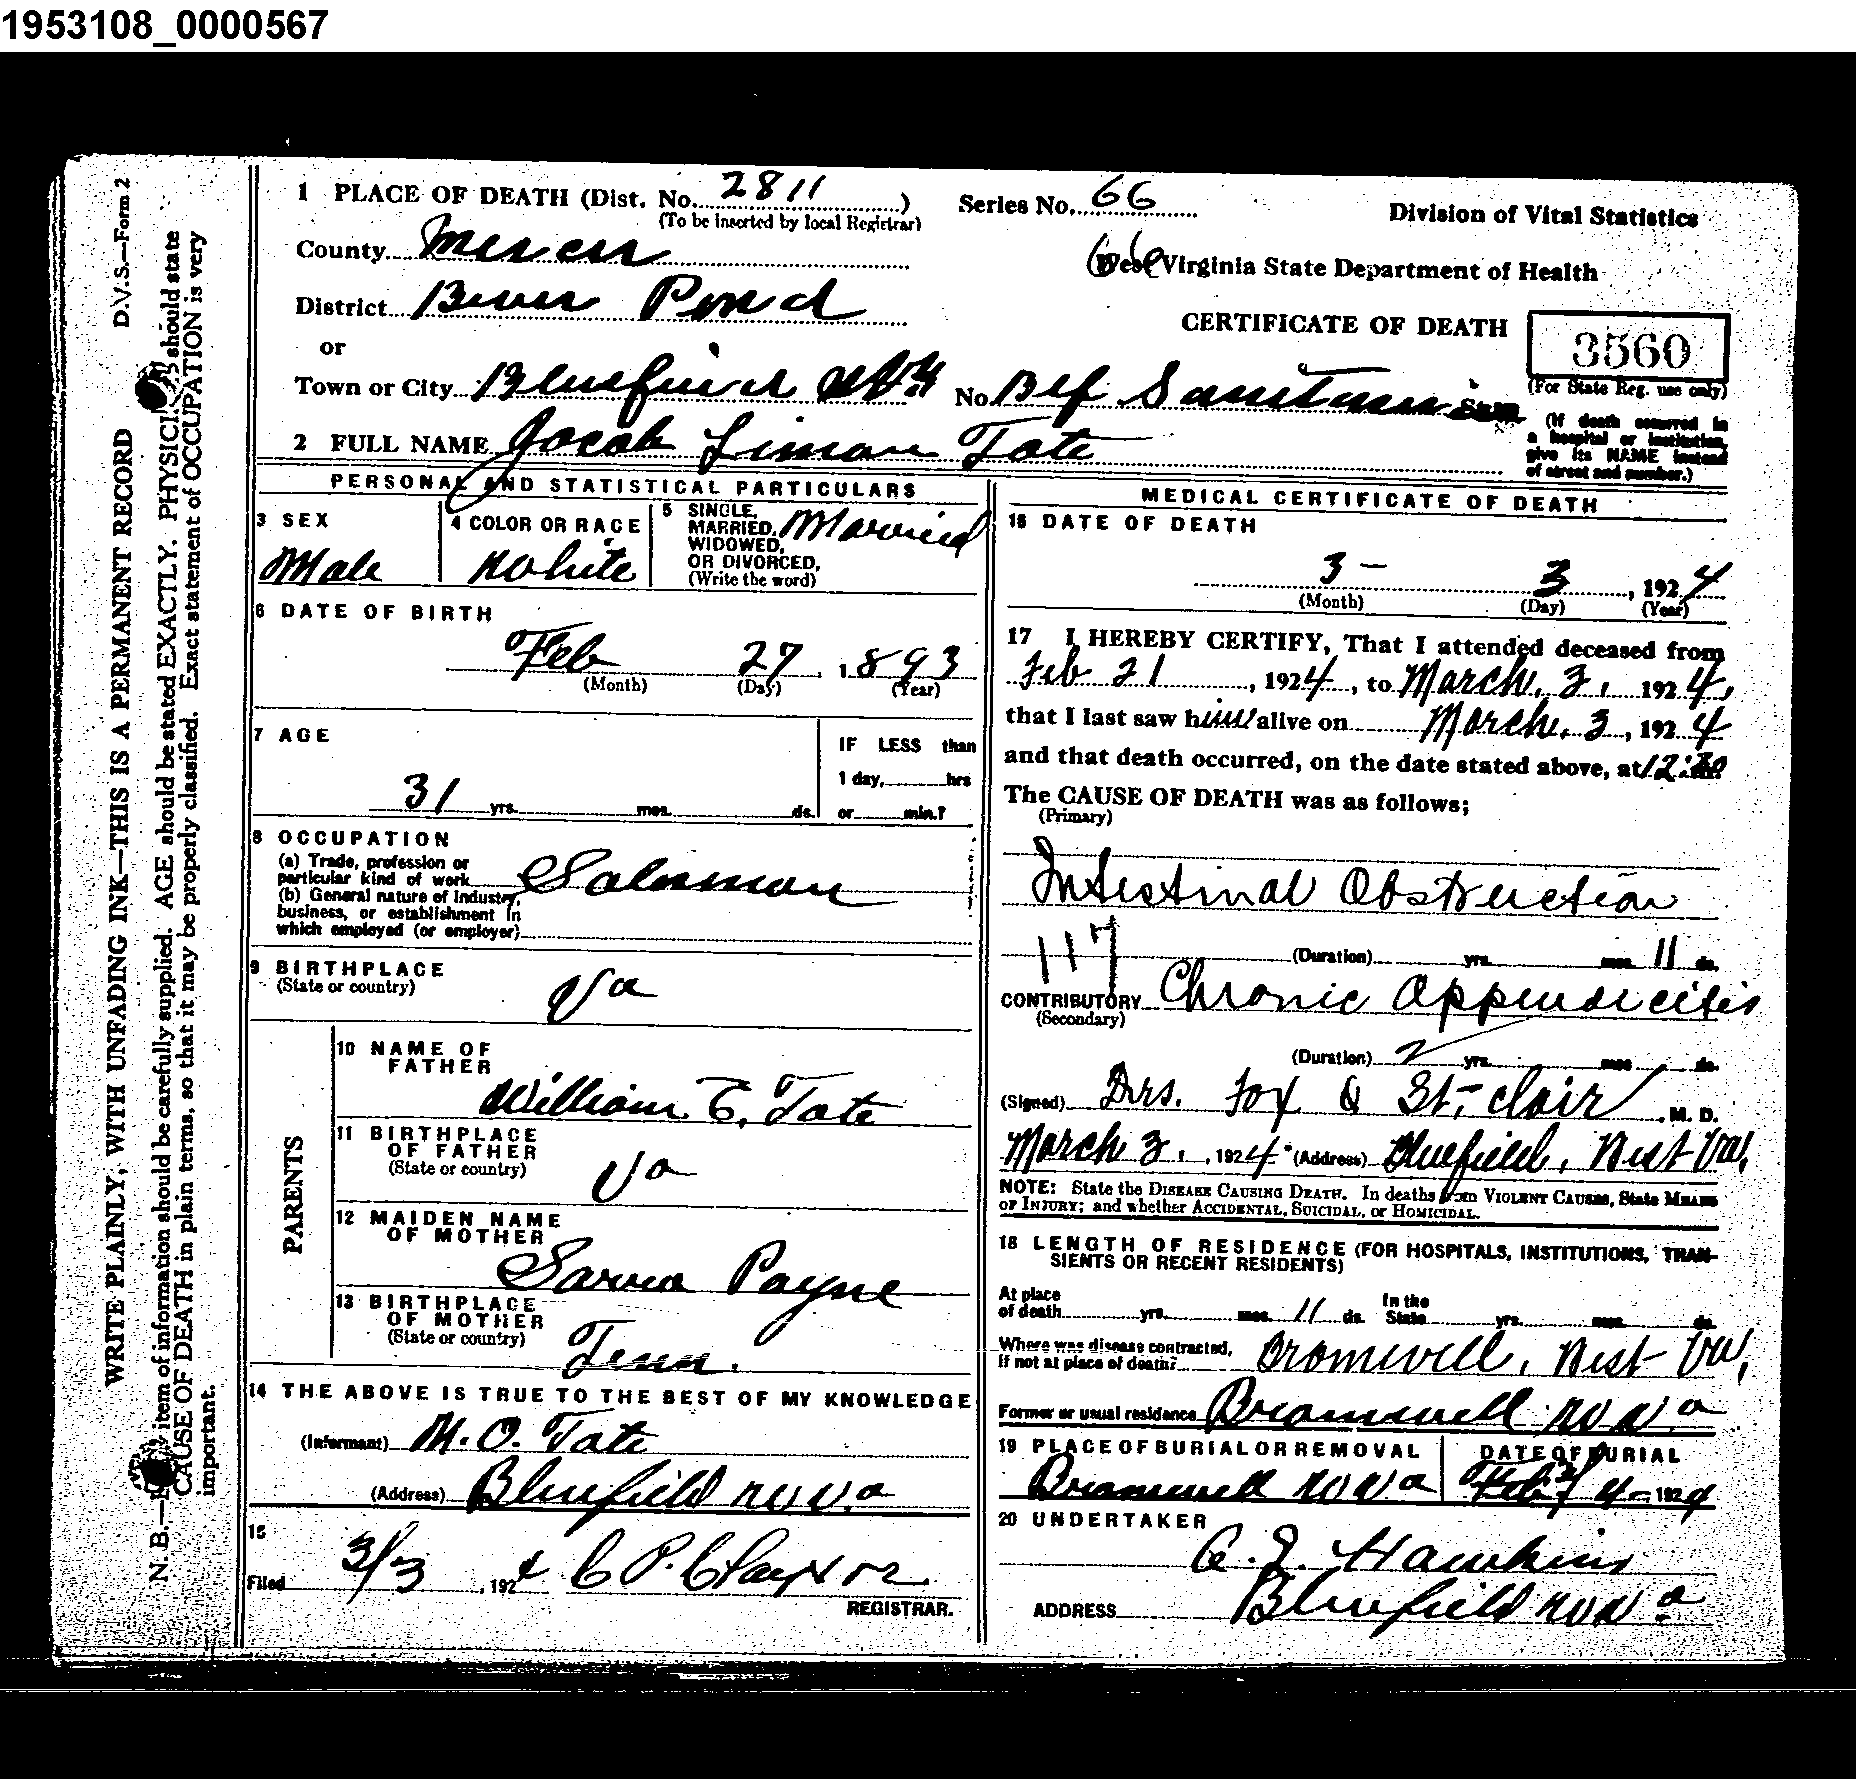 1953108_0000567
D.V.S.—Form 2
WRITE PLAINLY, WITH UNFADING INK—THIS IS A PERMANENT RECORD
N. B.— item of information should be carefully supplied. AGE should be stated EXACTLY. PHYSICI should state
CAUSE OF DEATH in plain terms, so that it may be properly classified. Exact statement of OCCUPATION is very
important.
1 PLACE OF DEATH (Dist. No. 2811 )
(To be inserted by local Registrar)
County Mercer
District Bever Pond
or
Town or City Bluefield
2 FULL NAME Jocob Liman Tate
Series No. 66
Division of Vital Statistics
66
West Virginia State Department of Health
CERTIFICATE OF DEATH
3560
(For State Reg. use only)
No. Blf
(If death occurred in
a hospital or institution,
give its NAME instead
of street and number.)
PERSONAL AND STATISTICAL PARTICULARS
3 SEX
Male
4 COLOR OR RACE
White
5 SINGLE,
MARRIED,
WIDOWED,
OR DIVORCED,
(Write the word)
Married
6 DATE OF BIRTH
Feb 27, 1893
(Month) (Day) (Year)
7 AGE
31 yrs. mos. ds.
IF LESS than
1 day, hrs
or min.?
8 OCCUPATION
(a) Trade, profession or
particular kind of work Salesman
(b) General nature of industry,
business, or establishment in
which employed (or employer)
9 BIRTHPLACE
(State or country)
Va
PARENTS
10 NAME OF
FATHER
William T. Tate
11 BIRTHPLACE
OF FATHER
(State or country)
Va
12 MAIDEN NAME
OF MOTHER
Payne
13 BIRTHPLACE
OF MOTHER
(State or country)
Tenn.
14 THE ABOVE IS TRUE TO THE BEST OF MY KNOWLEDGE
(Informant) M. O. Tate
(Address) Bluefield W Va
15
Filed 3/3, 1924
REGISTRAR.
MEDICAL CERTIFICATE OF DEATH
16 DATE OF DEATH
3 - 3, 1924
(Month) (Day) (Year)
17 I HEREBY CERTIFY, That I attended deceased from
Feb 21, 1924, to March 3, 1924,
that I last saw him alive on March 3, 1924
and that death occurred, on the date stated above, at
The CAUSE OF DEATH was as follows;
(Primary)
Intestinal Obstruction
117
(Duration) yrs. mos. 11 ds.
CONTRIBUTORY Chronic Appendicitis
(Secondary)
(Duration) 2 yrs. mos. ds.
(Signed) Drs. Fox & St. Clair, M. D.
March 3, 1924 (Address) Bluefield, West Va.
NOTE: State the DISEASE CAUSING DEATH. In deaths from VIOLENT CAUSES, State MEANS
OF INJURY; and whether ACCIDENTAL, SUICIDAL, or HOMICIDAL.
18 LENGTH OF RESIDENCE (FOR HOSPITALS, INSTITUTIONS, TRAN-
SIENTS OR RECENT RESIDENTS)
At place
of death yrs. mos. 11 ds. In the
State yrs. mos. ds.
Where was disease contracted,
If not at place of death? Bromwell, West Va.
Former or usual residence Bramwell W Va
19 PLACE OF BURIAL OR REMOVAL
Bramwell W Va
DATE OF BURIAL
4 - 1924
20 UNDERTAKER
Hawkins
ADDRESS Bluefield W Va